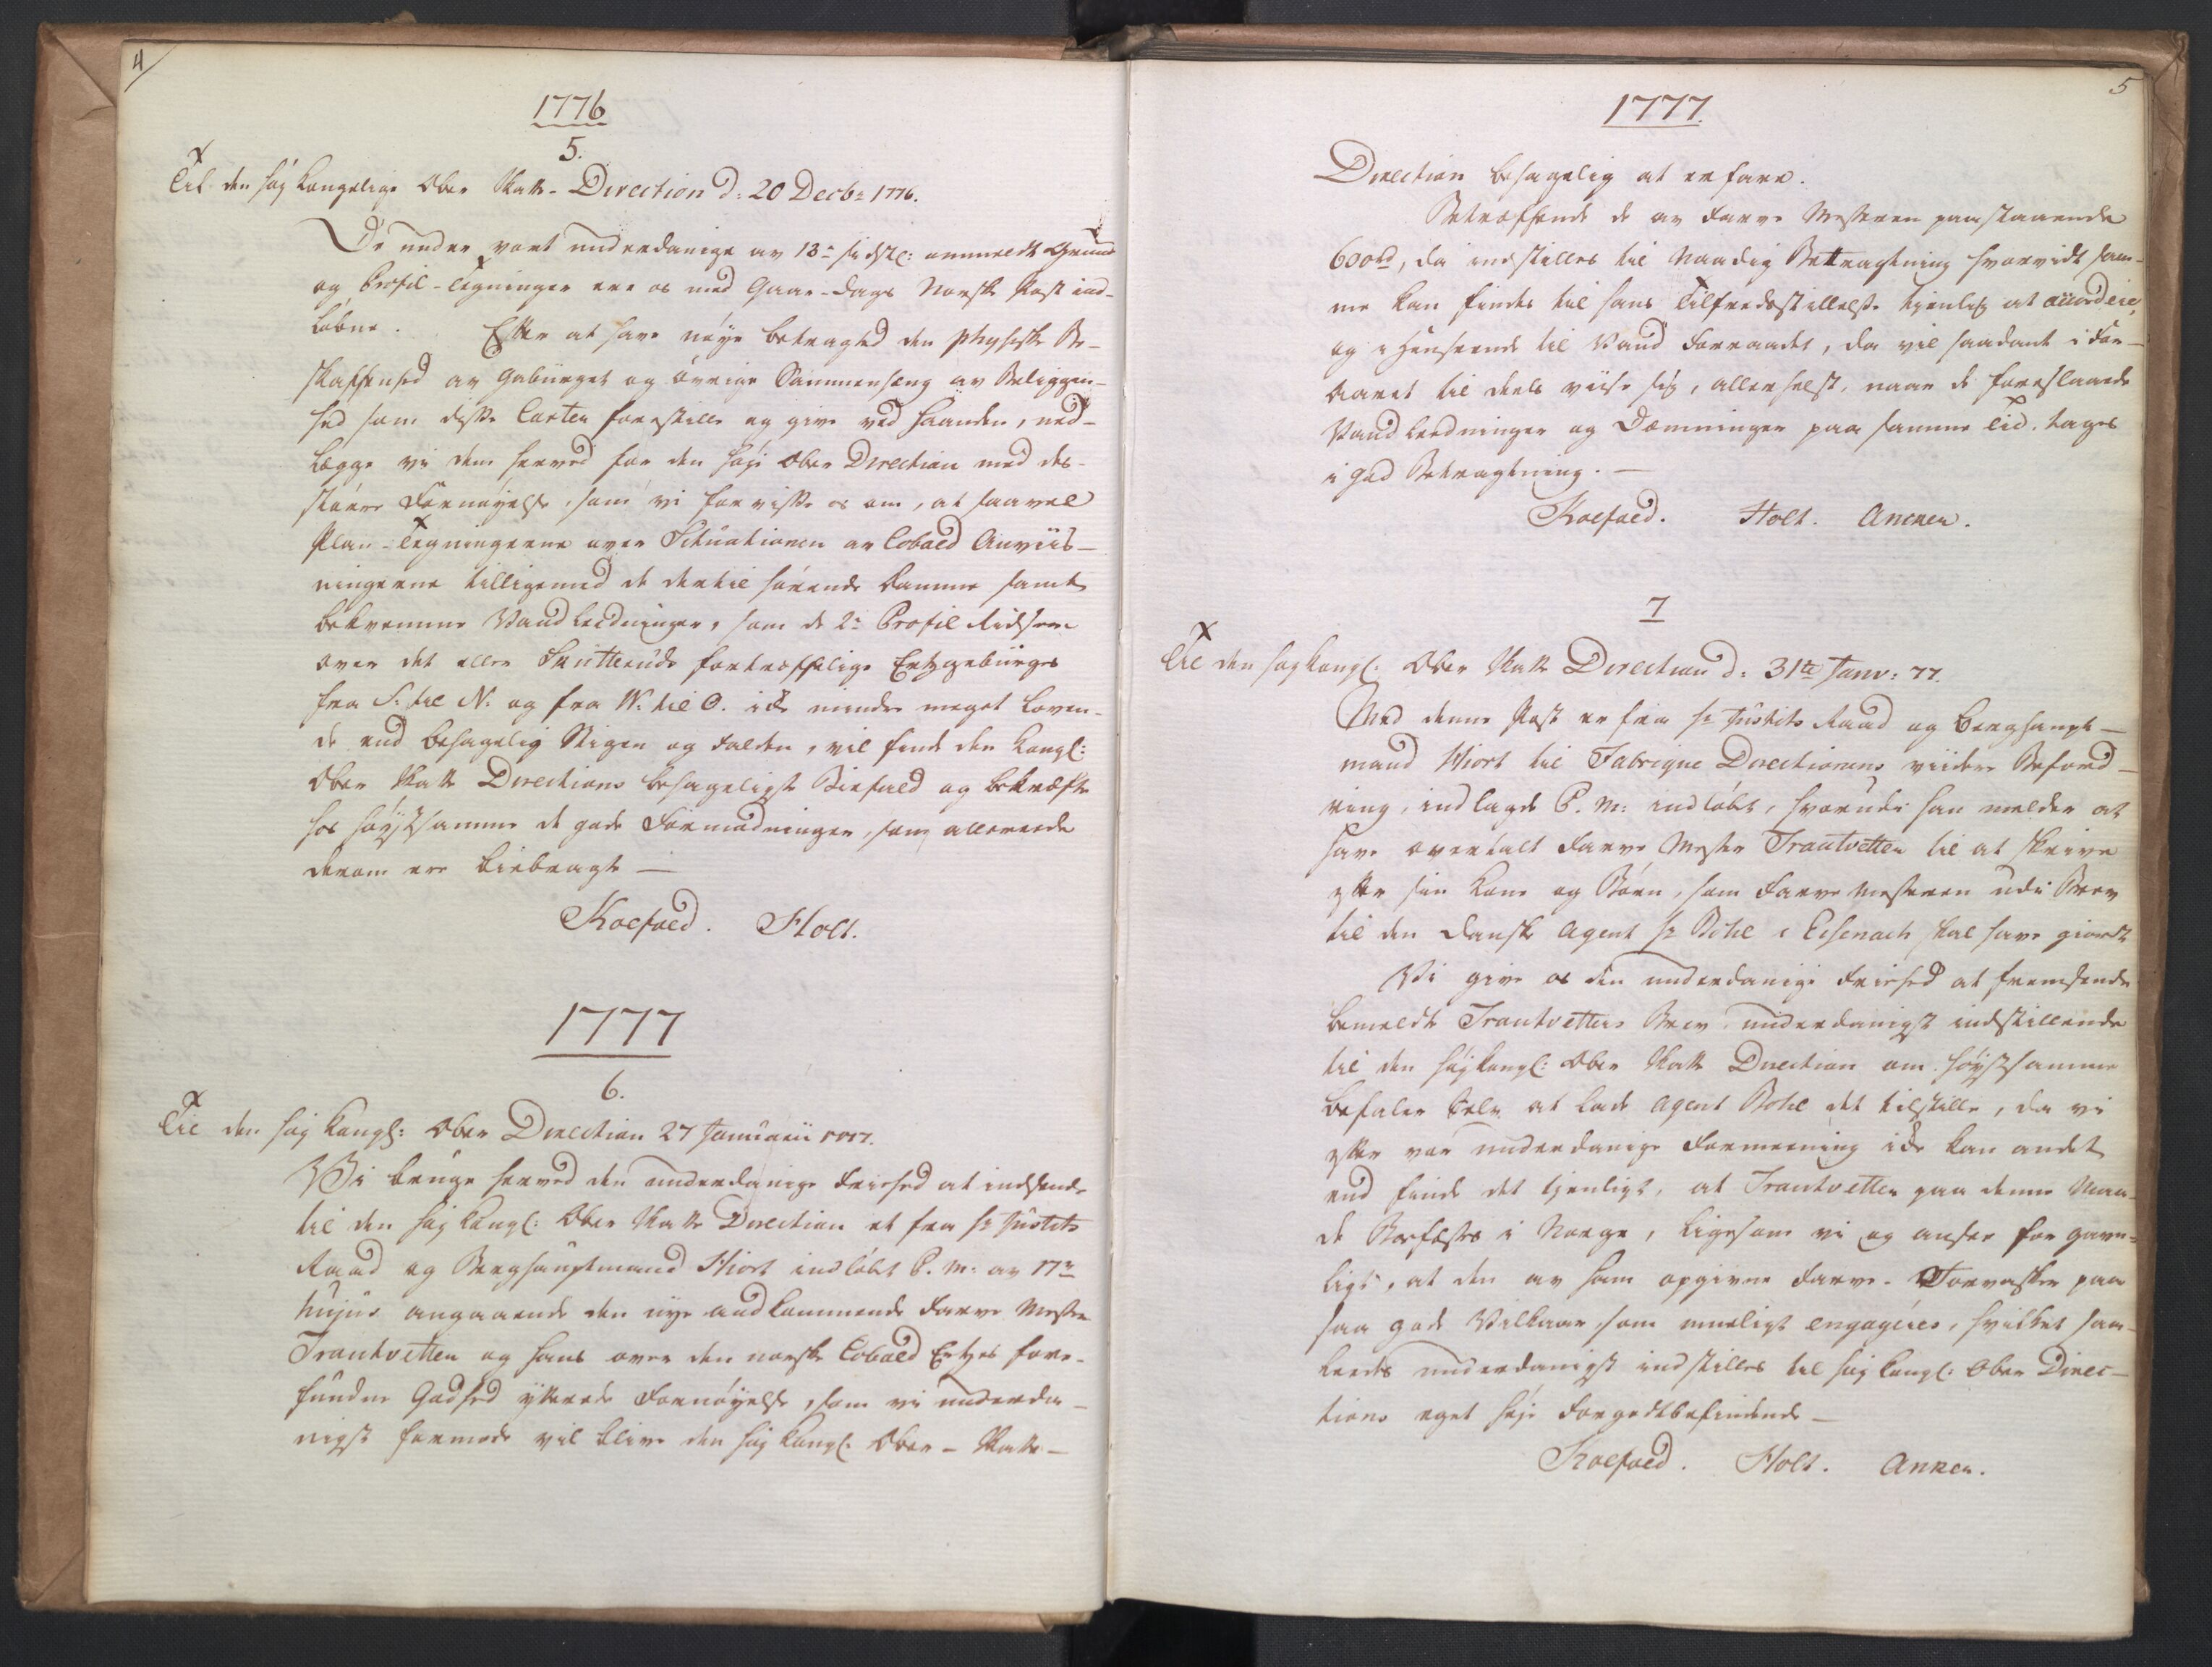 4
1776
5.
Til den høy Kongelige Ober Skatte-Direction d: 20 Decbr 1776.
De under vort underdanige av 13de sidstl: anmeldte Grund
og Profil-Tegninger ere os med Gaar-Dags Norske Post ind-
løbne. Efter at have nøye betragted den physiske Be-
skaffenhed av Gebürget og øvrige Sammenhæng av Beliggen-
hed som disse Carter forestille og give ved Haanden, ned-
lægge vi dem herved for den høye Ober Direction med des-
større Fornøyelse, som vi forvisse os om, at saavel
Plan-Tegningerne over Situationen av Cobold Anviis-
ningerne tilligemed de dertil hørende Damme samt
bekvemme Vandleedninger, som de 2de Profil Ridser
over det eller Skutteruds fortræffelige Ertzgebürges
fra S: til N: og fra W: til O. icke mindre meget loven-
de end behagelig Stigen og Falden, vil finde den Kongl:
Ober Skatte Directions behageligste Biefald og bekræfte
hos høystsamme de gode Formodninger, som allereede
derom ere biebragte —
Koefoed. Holt.
1777
6.
Til den høy Kongl: Ober Direction 27 Januarii 1777.
Vi bruge herved den underdanige Friehed at indsende
til den høy Kongl: Ober Skatte Direction et fra Hr Justits
Raad og Berghauptmand Hiort indløbet P. M: av 17de
hujus angaaende den nye andkommende Farve Mester
Trautvetter og hans over den norske Cobold Ertzes fore-
fundne Godhed yttrede Fornøyelse, som vi underda-
nigst formode vil blive den høy Kongl: Ober-Skatte-
5
1777.
Direction behagelig at erfare.
Betræffende de av Farve Mesteren paastaaende
600 rd, da indstilles til Naadig Bettragtning hvorvidt sam-
me kan findes til hans Tilfredsstillelse tjenlig at accordere,
og i Henseende til Vand Forraadet, da vil saadant i For-
aaret til deels viise sig, allerhelst, naar de foreslaaede
Vandleedninger og Dæmninger paa samme Tid tages
i god Betragtning. —
Koefoed. Holt. Ancker.
7
Til den høy Kongl: Ober Skatte Direction d: 31te Janv: 77.
Med denne Post er fra Hr Justits Raad og Berghaupt-
mand Hiort til Fabrique Directionens viidere Beford-
ring, indlagde P. M: indløbet, hvorudi han melder at
have overtalt Farve Mester Trautvetter til at skrive
efter sin Kone og Børn, som Farve Mesteren udi Brev
til den Danske Agent Hr Bohl i Eisenach skal have giordt
Vi give os den underdanige Friehed at fremsende
bemeldte Trautvetters Brev underdanigst indstillende
til den høy Kongl: Ober Skatte Direction om høystsamme
befaler Selv at lade Agent Bohl det tilstille, da vi
efter vor underdanige Formeening icke kan andet
end finde det tjenligt, at Trautvetter paa denne Maa-
de Boefæstes i Norge, ligesom vi og anser for gavn-
ligt, at den av ham opgivne Farve- Forvasker paa
saa gode Vilkaar, som mueligt engageres, hvilket saa-
leedes underdanigst indstilles til høy Kongl: Ober Direc-
tions eget høje Forgodtbefindende —
Koefoed. Holt. Anker.